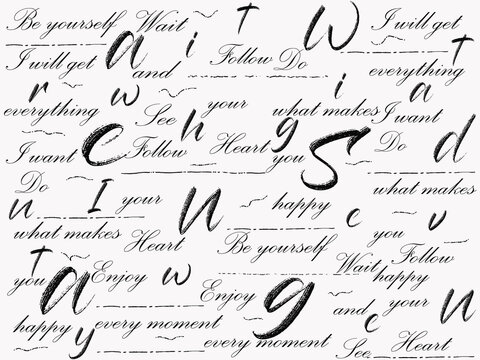 Be yourself Wait i T W I will get T
I will get a and Follow Do i everything
r w your a
everything See what makes I want
I want e Follow n Heart g you S Do d
Do
n I your happy c what makes
what makes n Heart Be yourself you u
T Wait Follow
you a Enjoy w g happy
Enjoy your n
happy y every moment and c
every moment See Heart